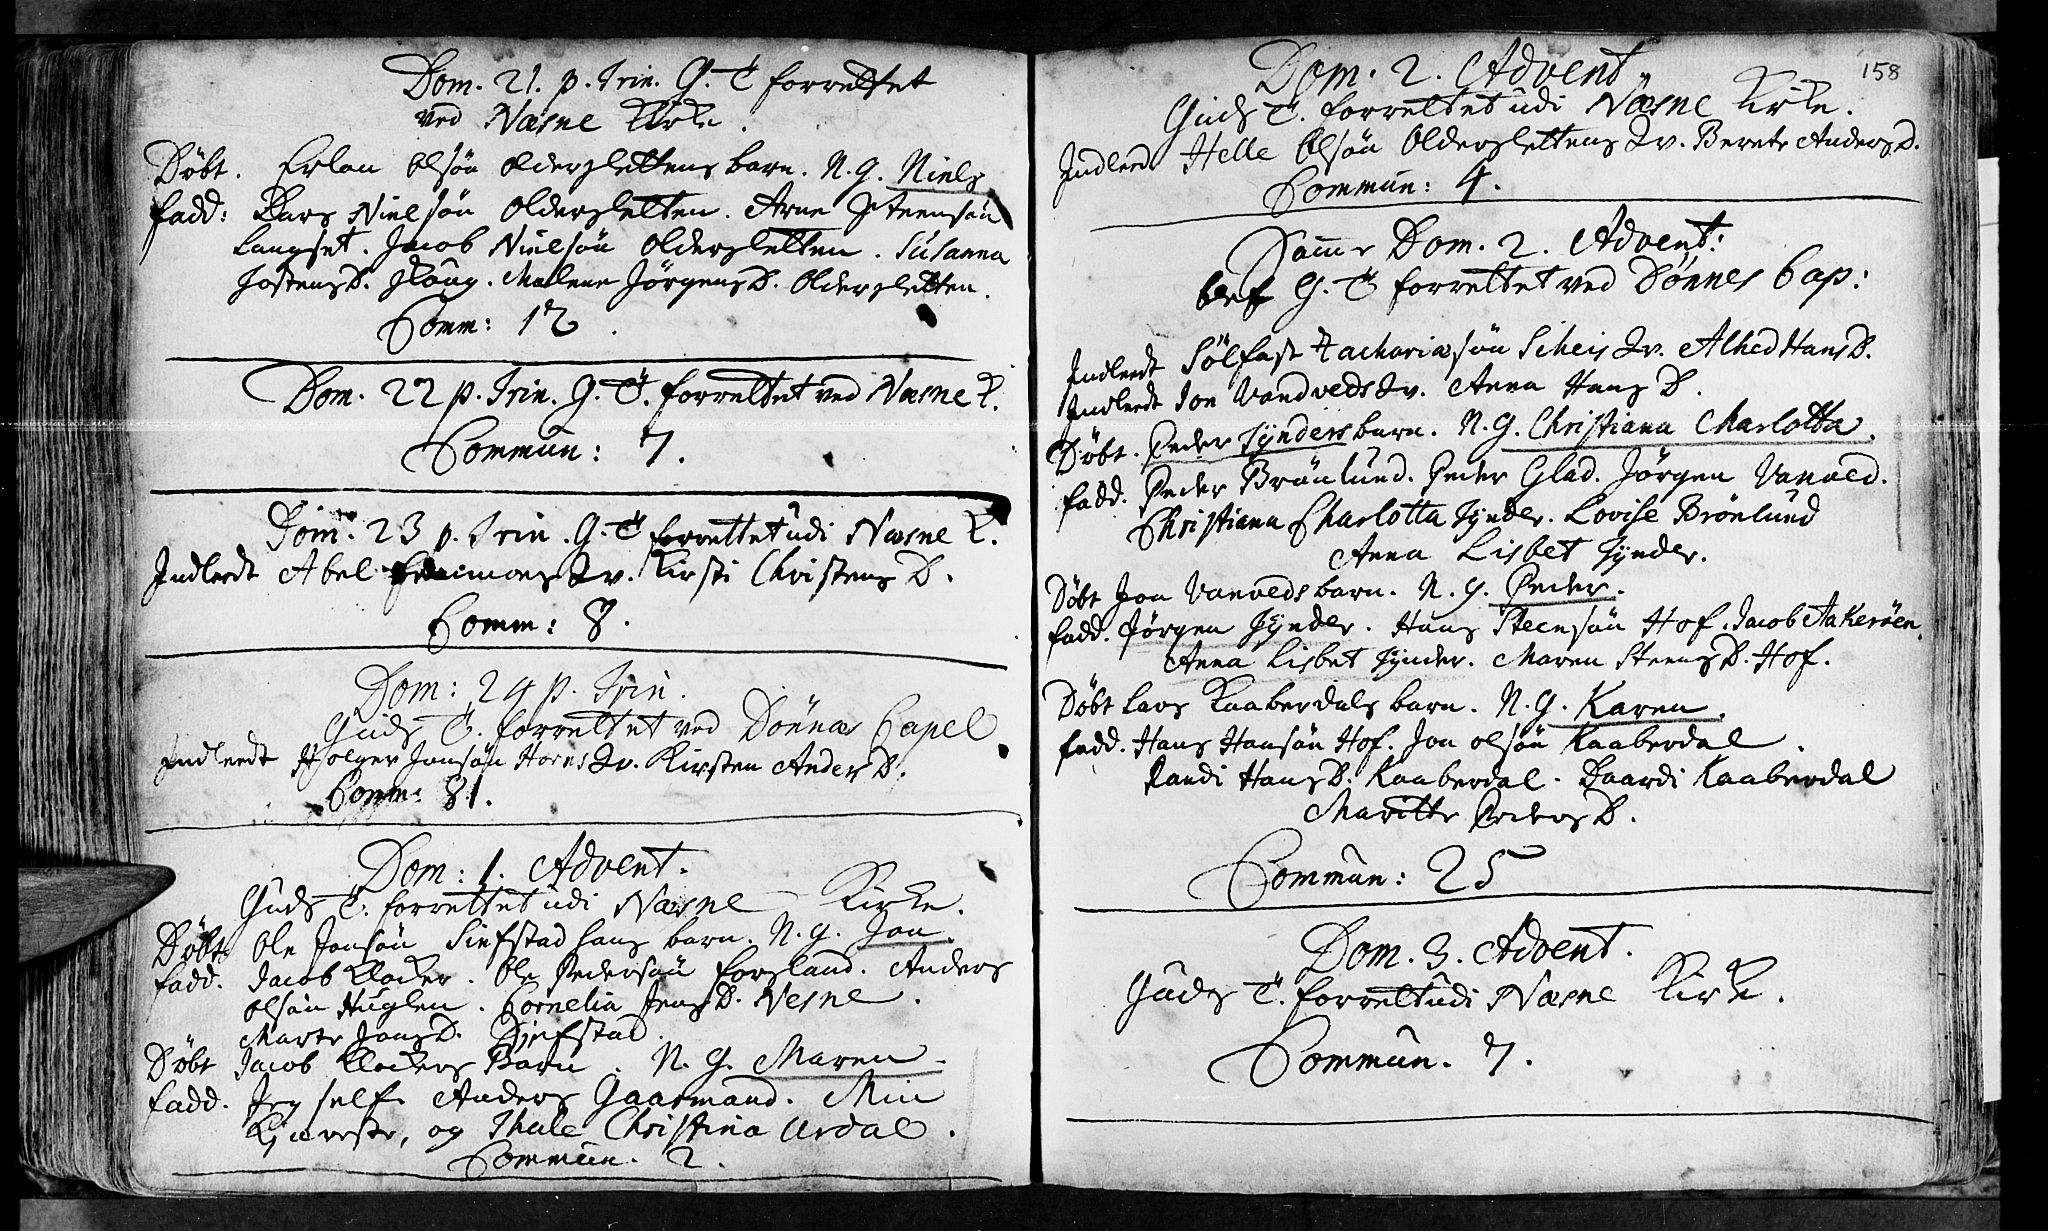 Dom. 21. p. Trin. G. T forrettet
ved Næsne Kirke.
Döbt. Erlan Olsön Oldergslettens barn. N. G. Niels
fadd: Lars Nielsön Oldersletten. Arne Steensön
Langset. Jacob Nielsön Oldersletten. Susanna
JostensD. Houg. Malene JörgensD. Oldersletten.
Comm: 12.
Dom. 22 p. Trin. G. T. forrettet ved Næsne K.
Commun: 7.
Dom. 23 p. Trin. G. T forrettet udi Næsne K.
Indleedt Abel Qv. Kirsti Christens D.
Comm: 8.
Dom: 24 p. Trin.
Guds T. forrettet ved Dönnæs Capel
Indleedt Holger Jonsön Horns Qv. Kirsten Anders D.
Comm: 81.
Dom: 1. Advent.
Guds T. forrettet udi Næsne Kirke.
Döbt Ole Jonsön barn. N. G. Jon.
fadd. Jacob Klocker. Ole Pedersön Forsland. Anders
Olsön Huglen. Cornelia JensD. Nesne.
Marte JonsD.
Döbt Jacob Klockers Barn. N. G. Maren.
fadd. Jeg self. Anders Gaarmand. Min
Kjæreste, og Thale Christina Urdal.
Commun. 2.
158
Dom. 2. Advent
Guds T. forrettet udi Næsne Kirke.
Indleed Helle Olsön Olderslettens Qv. Berete Anders D.
Commun: 4.
Samme Dom. 2. Advent:
blef G. T forrettet ved Dönnes Cap:
Indleedt Sölfast Zachariæsön Scheis Qv. Alhed Hans D.
Indleedt Jon Vandveds Qv. Anna Hans D.
Döbt. Peder Tynders barn. N. G. Christiana Charlotta.
fadd. Peder Brönlund. Peder Glad. Jörgen Vanved.
Christiana Charlotta Tynder. Lovise Brönlund
Anna Lisbet Tynder.
Döbt Jon Vanveds barn. N. G. Peder.
fadd. Jörgen Tynder. Hans Steensön Hof. Jacob Aakeröen.
Anna Lisbet Tynder. Maren Steens D. Hof.
Döbt Lars Kaaberdals barn. N. G. Karen.
fadd. Hans Hansön Hof. Jon Olsön Kaaberdal.
Randi Hans D. Kaaberdal. Baardi Kaaberdal
Maritte Peders D.
Commun: 25
Dom. 3. Advent.
Guds T. forrett udi Næsne Kirke.
Commun. 7.